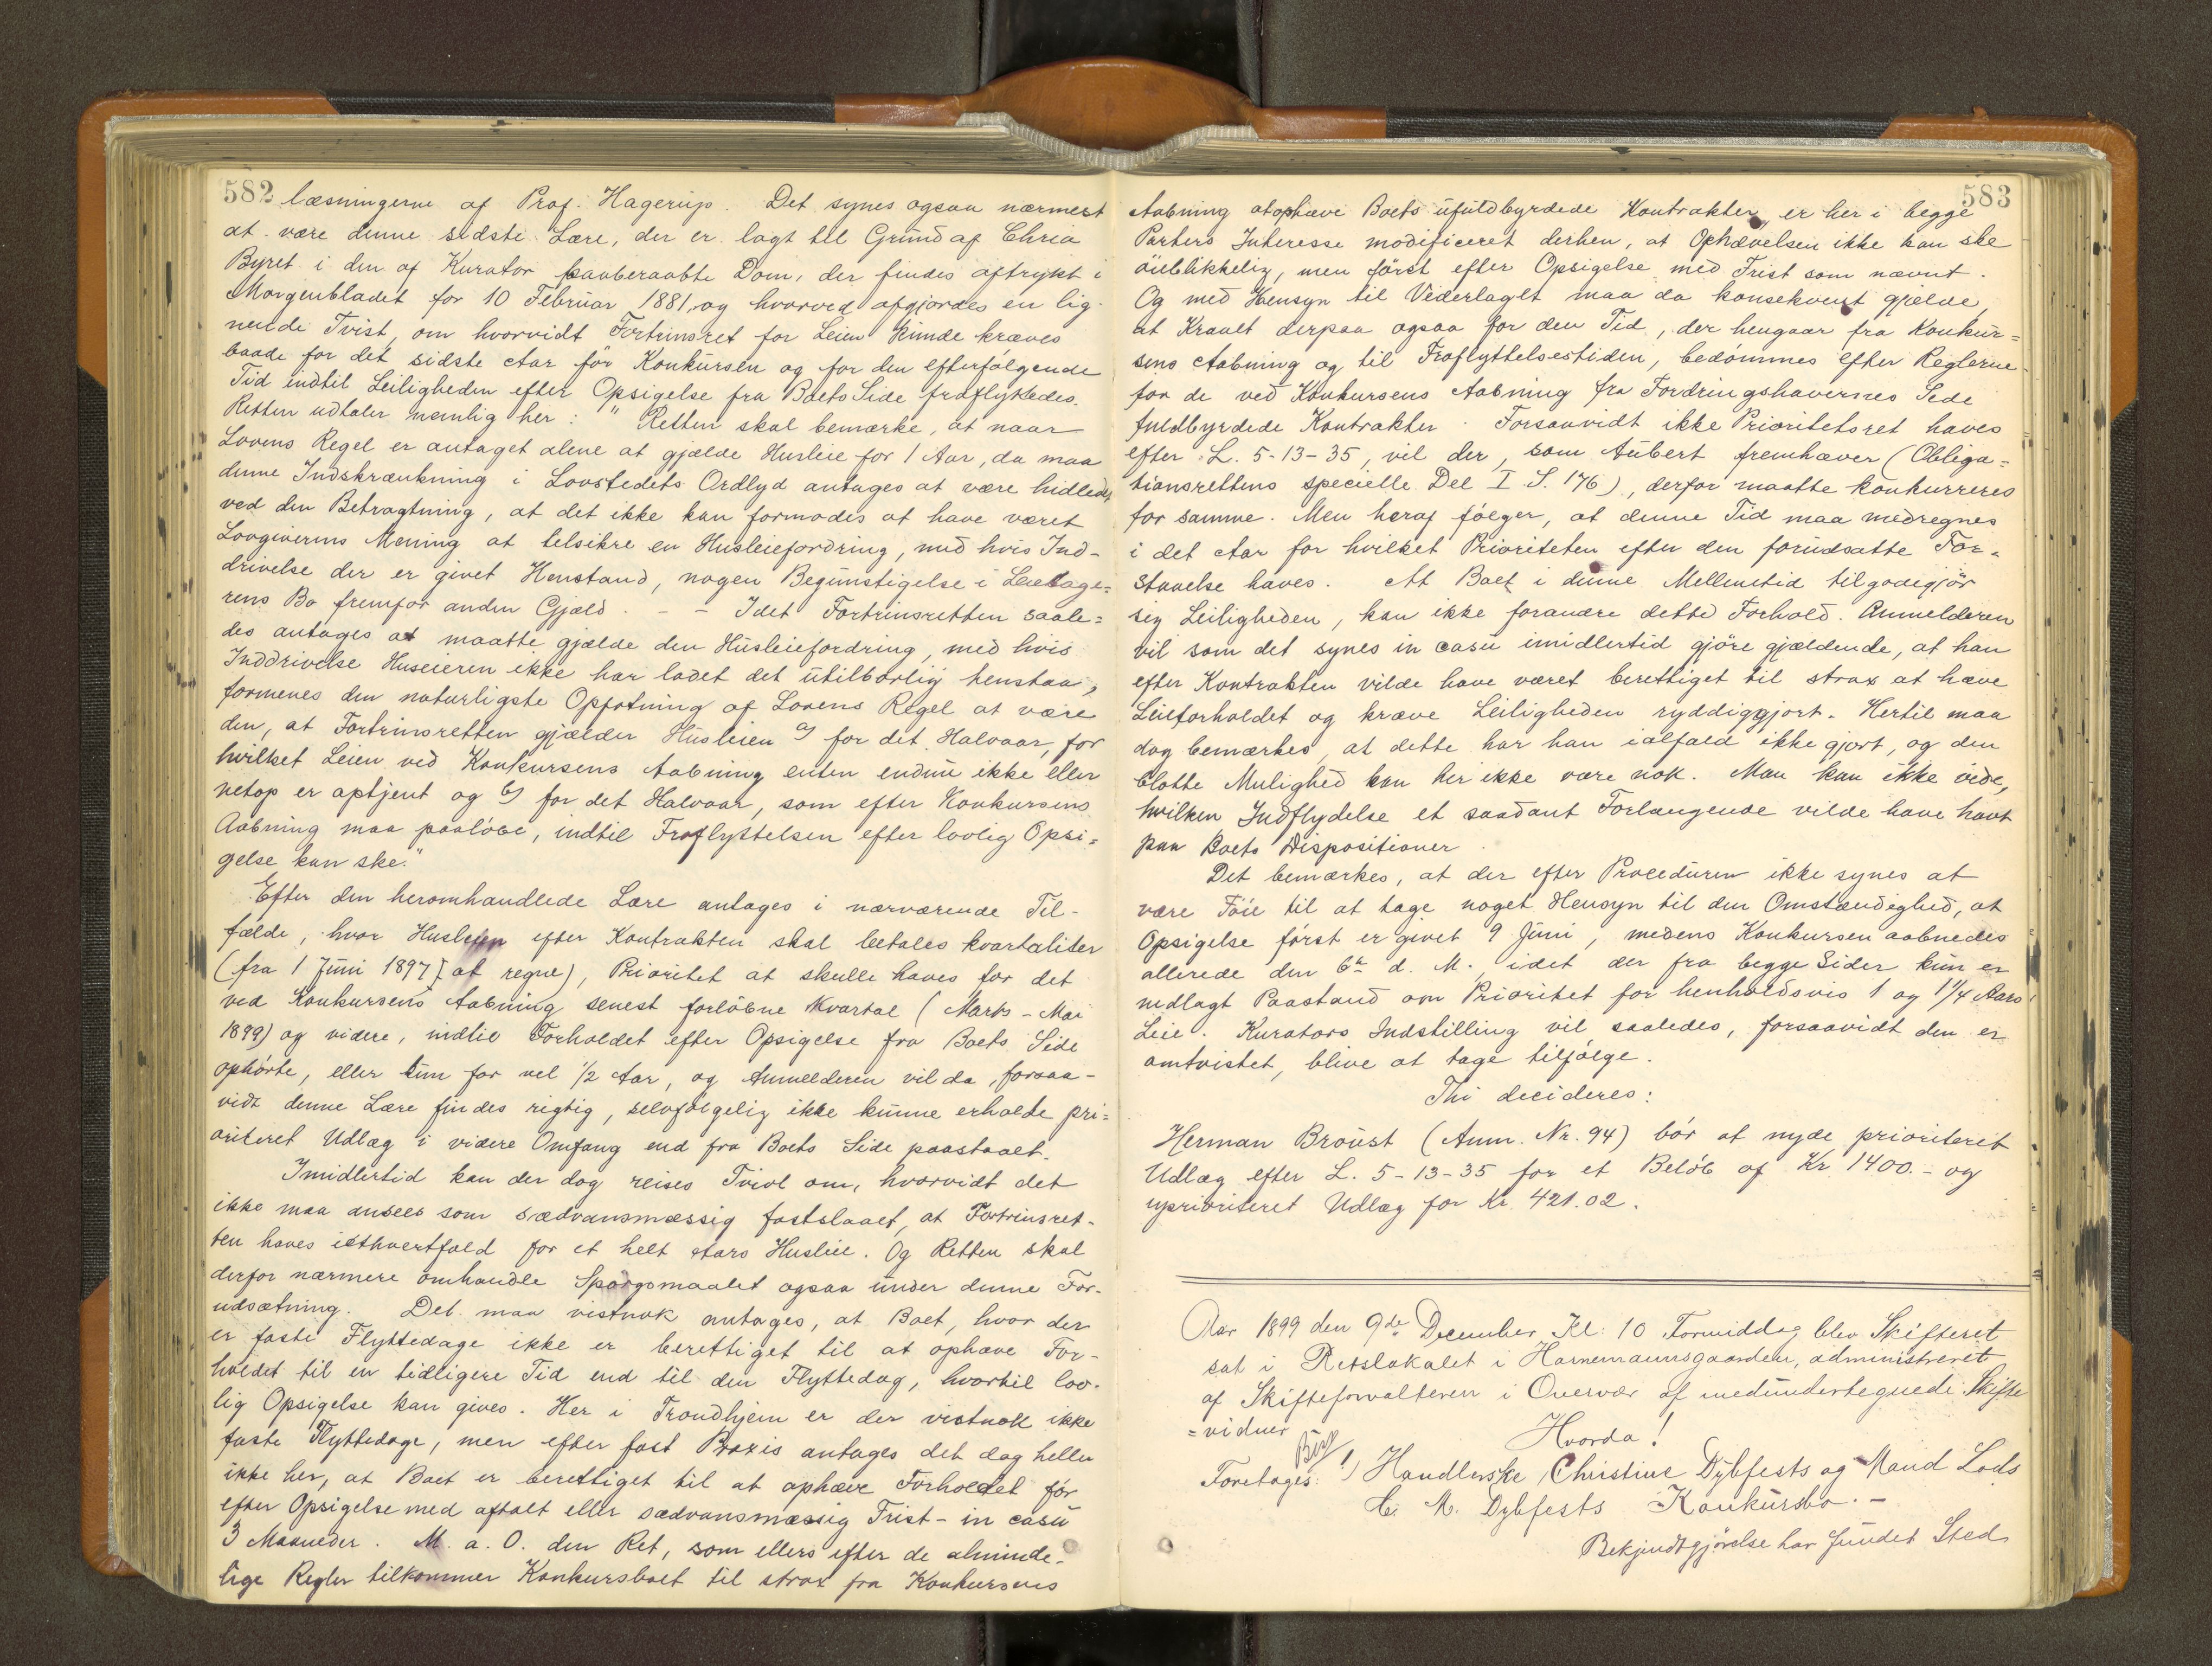 582
læsningerne af Prof. Hagerup. Det synes ogsaa nærmest
at være denne sidste Lære, der er lagt til Grund af Chria
Byret i den af Kurator paaberaabte Dom, der findes aftrykt i
Morgenbladet for 10 Februar 1881, og hvorved afgjordes en lig-
nende Tvist, om hvorvidt Fortrinsret for Leien kunde kræves
baade for det sidste Aar før Konkursen og for den efterfølgende
Tid indtil Leiligheden efter Opsigelse fra Boets Side fraflyttedes.
Retten udtaler nemlig her: "Retten skal bemærke, at naar
Lovens Regel er antaget alene at gjælde Husleie for 1 Aar, da maa
denne Indskrænkning i Lovstedets Ordlyd antages at være hidledet
ved den Betragtning, at det ikke kan formodes at have været
Lovgiverens Mening at tilsikre en Husleiefordring, med hvis Ind-
drivelse der er givet Henstand, nogen Begunstigelse i Leietage=
rens Bo fremfor anden Gjæld. - - Idet Fortrinsretten saale=
des antages at maatte gjælde den Husleiefordring, med hvis
Inddrivelse Huseieren ikke har ladet det utilbørlig henstaa,
formenes den naturligste Opfatning af Lovens Regel at være
den, at Fortrinsretten gjælder Husleien a) for det Halvaar, for
hvilket Leien ved Konkursens Aabning enten endnu ikke eller
netop er optjent og b) for det Halvaar, som efter Konkursens
Aabning maa paaløbe, indtil Fraflyttelsen efter lovlig Opsi=
gelse kan ske."
Efter den heromhandlede Lære antages i nærværende Til-
fælde, hvor Husleien efter Kontrakten skal betales kvartaliter
(fra 1 Juni 1897 at regne), Prioritet at skulle haves for det
ved Konkursens Aabning senest forløbne Kvartal (Marts - Mai
1899) og videre, indtil Forholdet efter Opsigelse fra Boets Side
ophørte, eller kun for vel 1/2 Aar, og Anmelderen vil da, forsaa-
vidt denne Lære findes rigtig, selvfølgelig ikke kunne erholde pri=
oriteret Udlæg i videre Omfang end fra Boets Side paastaaet.
Imidlertid kan der dog reises Tvivl om, hvorvidt det
ikke maa ansees som sædvansmæssig fastslaaet, at Fortrinsret-
ten haves iethvertfald for et helt Aars Husleie. Og Retten skal
derfor nærmere omhandle Spørgsmaalet ogsaa under denne For-
udsætning. Det maa vistnok antages, at Boet, hvor der
er faste Flyttedage ikke er berettiget til at ophæve For-
holdet til en tidligere Tid end til den Flyttedag, hvortil lov-
lig Opsigelse kan gives. Her i Trondhjem er der vistnok ikke
faste Flyttedage, men efter fast Praxis antages det dog heller
ikke her, at Boet er berettiget til at ophæve Forholdet før
efter Opsigelse med aftalt eller sædvansmæssig Frist - in casu
3 Maaneder. M. a. O. den Ret, som ellers efter de alminde-
lige Regler tilkommer Konkursboet til strax fra Konkursens
583
Aabning at ophæve Boets ufuldbyrdede Kontrakter er her i begge
Parters Interesse modificeret derhen, at Ophævelsen ikke kan ske
øieblikkelig, men først efter Opsigelse med Frist som nævnt.
Og med Hensyn til Vederlaget maa da konsekvent gjælde,
at Kravet derpaa ogsaa for den Tid, der hengaar fra Konkur=
sens Aabning og til Fraflyttelsestiden, bedømmes efter Reglerne
for de ved Konkursens Aabning fra Fordringshavernes Side
fuldbyrdede Kontrakter. Forsaavidt ikke Prioritetsret haves
efter L. 5-13-35, vil der, som Aubert fremhæver (Obliga=
tionsrettens specielle Del I S. 176), derfor maatte konkurreres
for samme. Men heraf følger, at denne Tid maa medregnes
i det Aar for hvilket Prioriteten efter den forudsatte For=
staaelse haves. At Boet i denne Mellemtid tilgodegjør
sig Leiligheden, kan ikke forandre dette Forhold. Anmelderen
vil som det synes in casu imidlertid gjøre gjældende, at han
efter Kontrakten vilde have været berettiget til strax at hæve
Leieforholdet og kræve Leiligheden ryddiggjort. Hertil maa
dog bemærkes, at dette har han ialfald ikke gjort, og den
blotte Mulighed kan her ikke være nok. Man kan ikke vide,
hvilken Indflydelse et saadant Forlangende vilde have havt
paa Boets Dispositioner.
Det bemærkes, at der efter Proceduren ikke synes at
være Føie til at tage noget Hensyn til den Omstændighed, at
Opsigelse først er givet 9 Juni, medens Konkursen aabnedes
allerede den 6te d. M. idet der fra begge Sider kun er
nedlagt Paastand om Prioritet for henholdsvis 1 og 1 1/4 Aars
Leie. Kurators Indstilling vil saaledes, forsaavidt den er
omtvistet, blive at tage tilfølge.
Thi decideres:
Herman Broust (Anm. Nr. 94) bør at nyde prioriteret
Udlæg efter L. 5-13-35 for et Beløb af Kr. 1400.- og
uprioriteret Udlæg for Kr. 421.02.
Aar 1899 den 9de December Kl: 10 Formiddag blev Skifteret
sat i Retslokalet i Hornemannsgaarden, administreret
af Skifteforvalteren i Overvær af medundertegnede Skifte
=vidner
Hvorda!
Foretages: 1) Handlerske Christine Dybfests og Mand Lods
C. M. Dybfests Konkursbo.-
Bekjendtgjørelse har fundet Sted